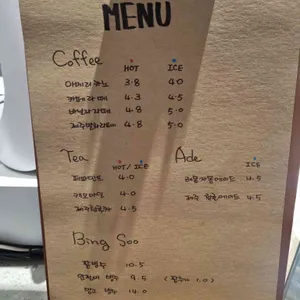 MENU
Coffee
HOT ICE
아메리카노 3.8 4.0
카페라떼 4.3 4.5
바닐라라떼 4.8 5.0
제주말차라떼 4.8 5.0
Tea HOT/ICE
페퍼민트 4.0
캐모마일 4.0
4.5
Ade ICE
레몬자몽에이드 4.5
제주 에이드 4.5
Bing Soo
팥빙수 10.5
인절미 빙수 9.5
망고 빙수 14.0